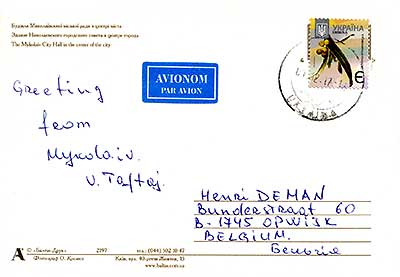 Будинок Миколаївської міської ради в центрі міста
Здание Николаевского городского совета в центре города
The Mykolaiv City Hall in the center of the city
УКРАЇНА
Є
AVIONOM
PAR AVION
Greeting
from
Mykolaiv.
V. Taftaj.
Henri DEMAN
Bunderstraat 60
B-1745 OPWIJK
BELGIUM.
Бельгія
© «Балтія-Друк» 2197 тел.: (044) 502 10 42
Фотограф О.
www.baltia.com.ua